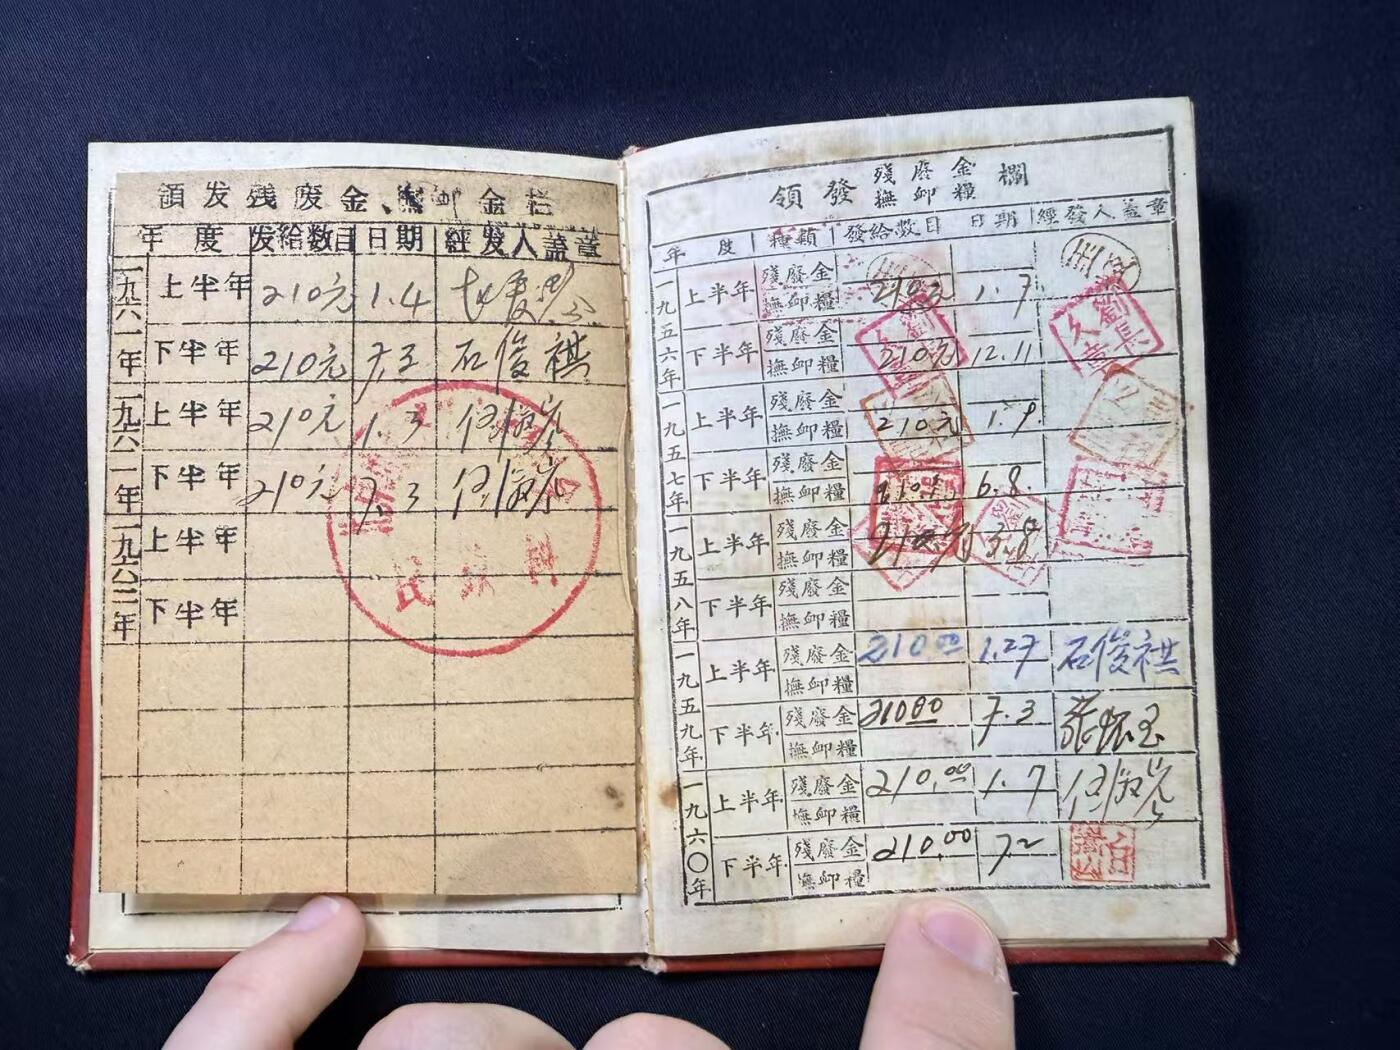 領发残废金、撫卹金栏
年度 发给数目 日期 経发人盖章
一九六一年 上半年 210元 1.4
下半年 210元 7.3 石俊祺
一九六一年 上半年 210元 1.3
下半年 210元 7.3
一九六二年 上半年
下半年
民政科
領發殘廢金撫卹糧欄
年度 種類 發給數目 日期 經發人蓋章
一九五六年 上半年 殘廢金 210元 1.7
撫卹糧
下半年 殘廢金 210元 12.11 劉長久章
撫卹糧
一九五七年 上半年 殘廢金 210元 1.9
撫卹糧
下半年 殘廢金 6.8.
撫卹糧
一九五八年 上半年 殘廢金 210元 3.8
撫卹糧
下半年 殘廢金
撫卹糧
一九五九年 上半年 殘廢金 210.00 1.27 石俊祺
撫卹糧
下半年 殘廢金 210.00 7.3 張懷玉
撫卹糧
一九六〇年 上半年 殘廢金 210.00 1.7
撫卹糧
下半年 殘廢金 210.00 7.2
撫卹糧